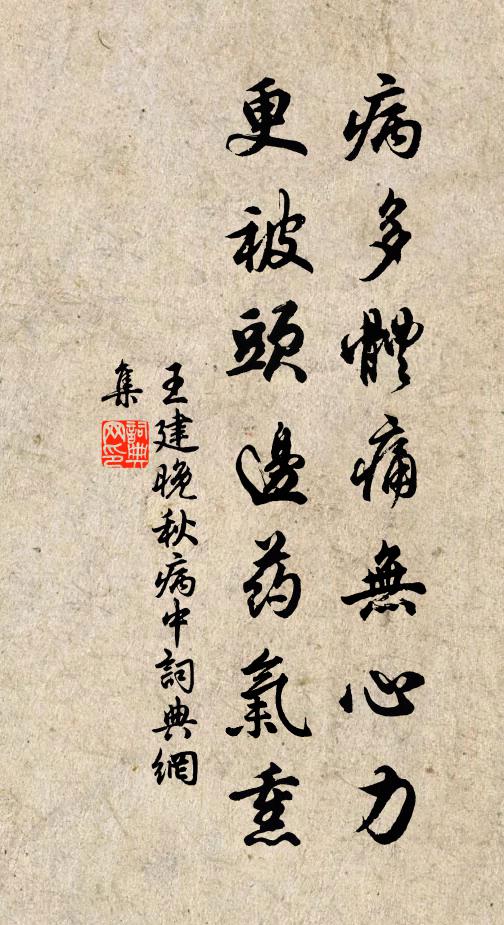 病多體痛無心力
更被頭邊药氣熏
王建晚秋病中詞典網
集
詞典网印